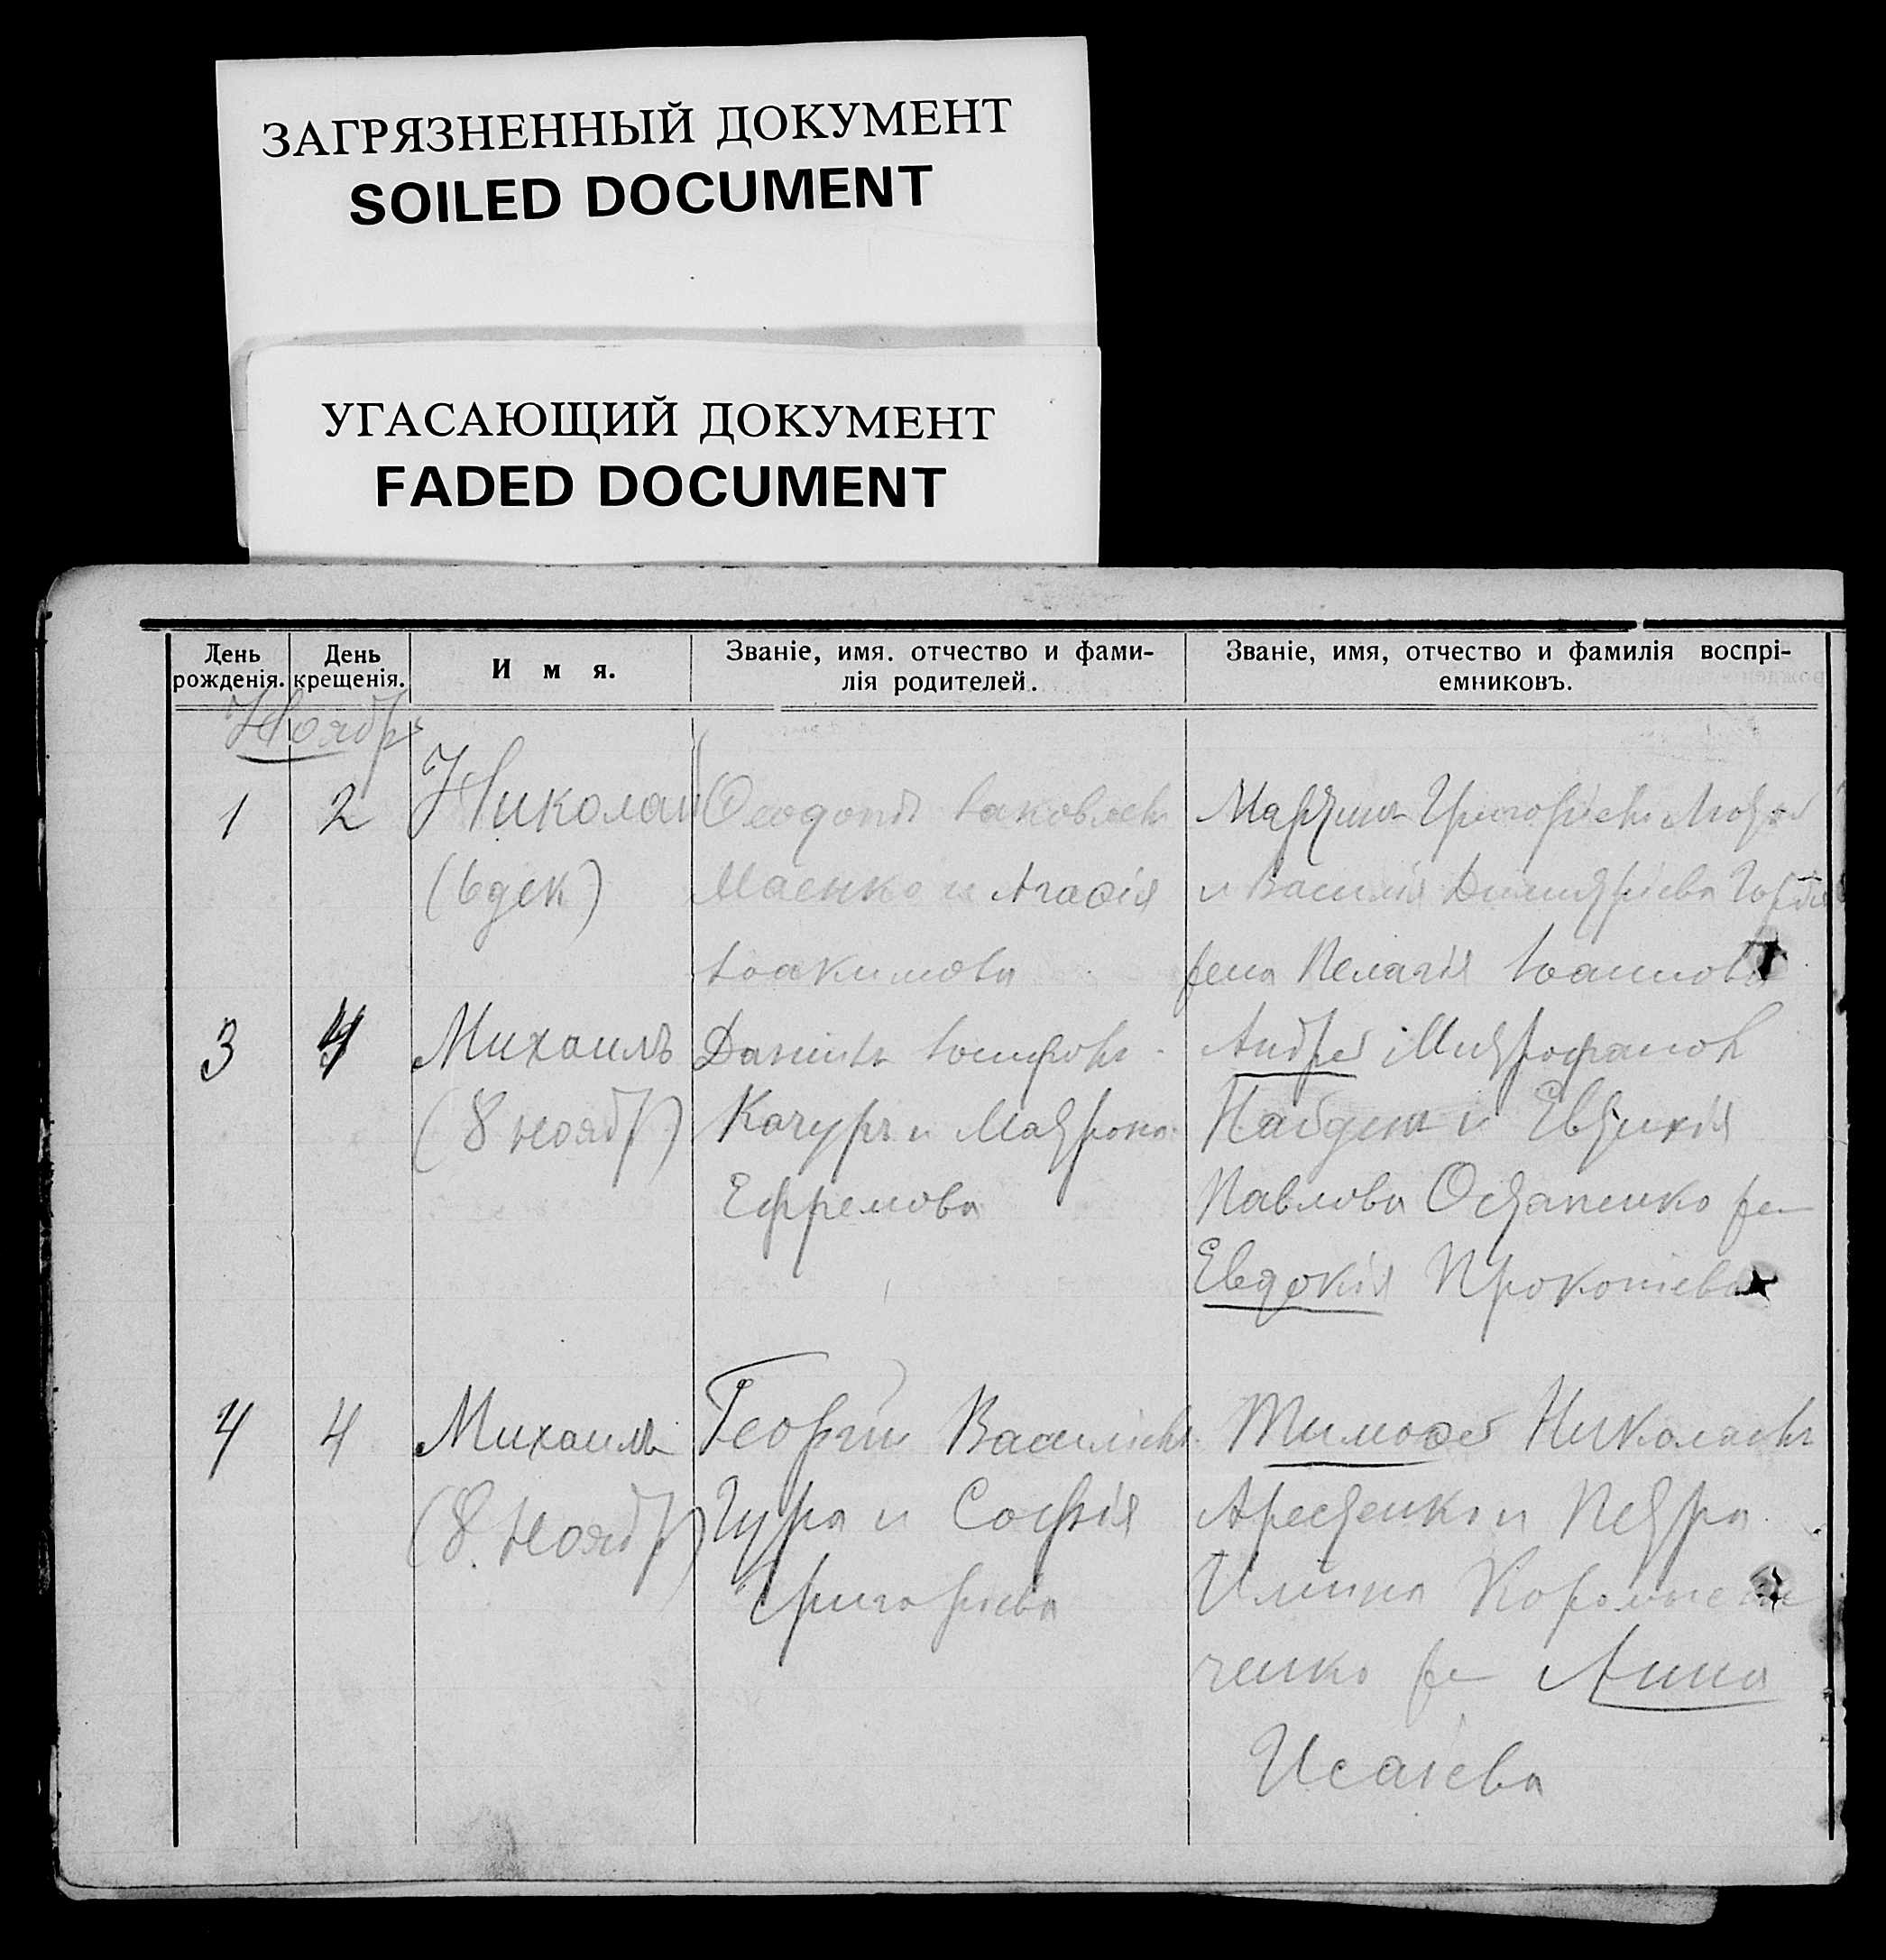 ЗАГРЯЗНЕННЫЙ ДОКУМЕНТ
SOILED DOCUMENT
УГАСАЮЩИЙ ДОКУМЕНТ
FADED DOCUMENT
День рожденія.
День крещенія.
И м я.
Званіе, имя. отчество и фами-
лія родителей.
Званіе, имя, отчество и фамилія воспрі-
емниковъ.
Ноябрь
1 2 Николай
(6 дек)
Іаковлевъ
Маенко и Агаѳія
Іоакимова
Григоріевъ
и Василія Димитріева
жена Пелагія Іоаннова
3 4 Михаилъ
(8 нояб)
Даніилъ Іосифовъ
Качуръ и Матрона
Ефремова
Андрей Митрофанов
Найден и Евтихія
Павлова Остапенко же
Евдокія Прокопіева
4 4 Михаилъ
(8 нояб)
Георгій Василіевъ
Чура и Софія
Григоріева
Тимоѳей Николаевъ
Арестенко и Петра
Ильина
ченко же Анна
Исаіева